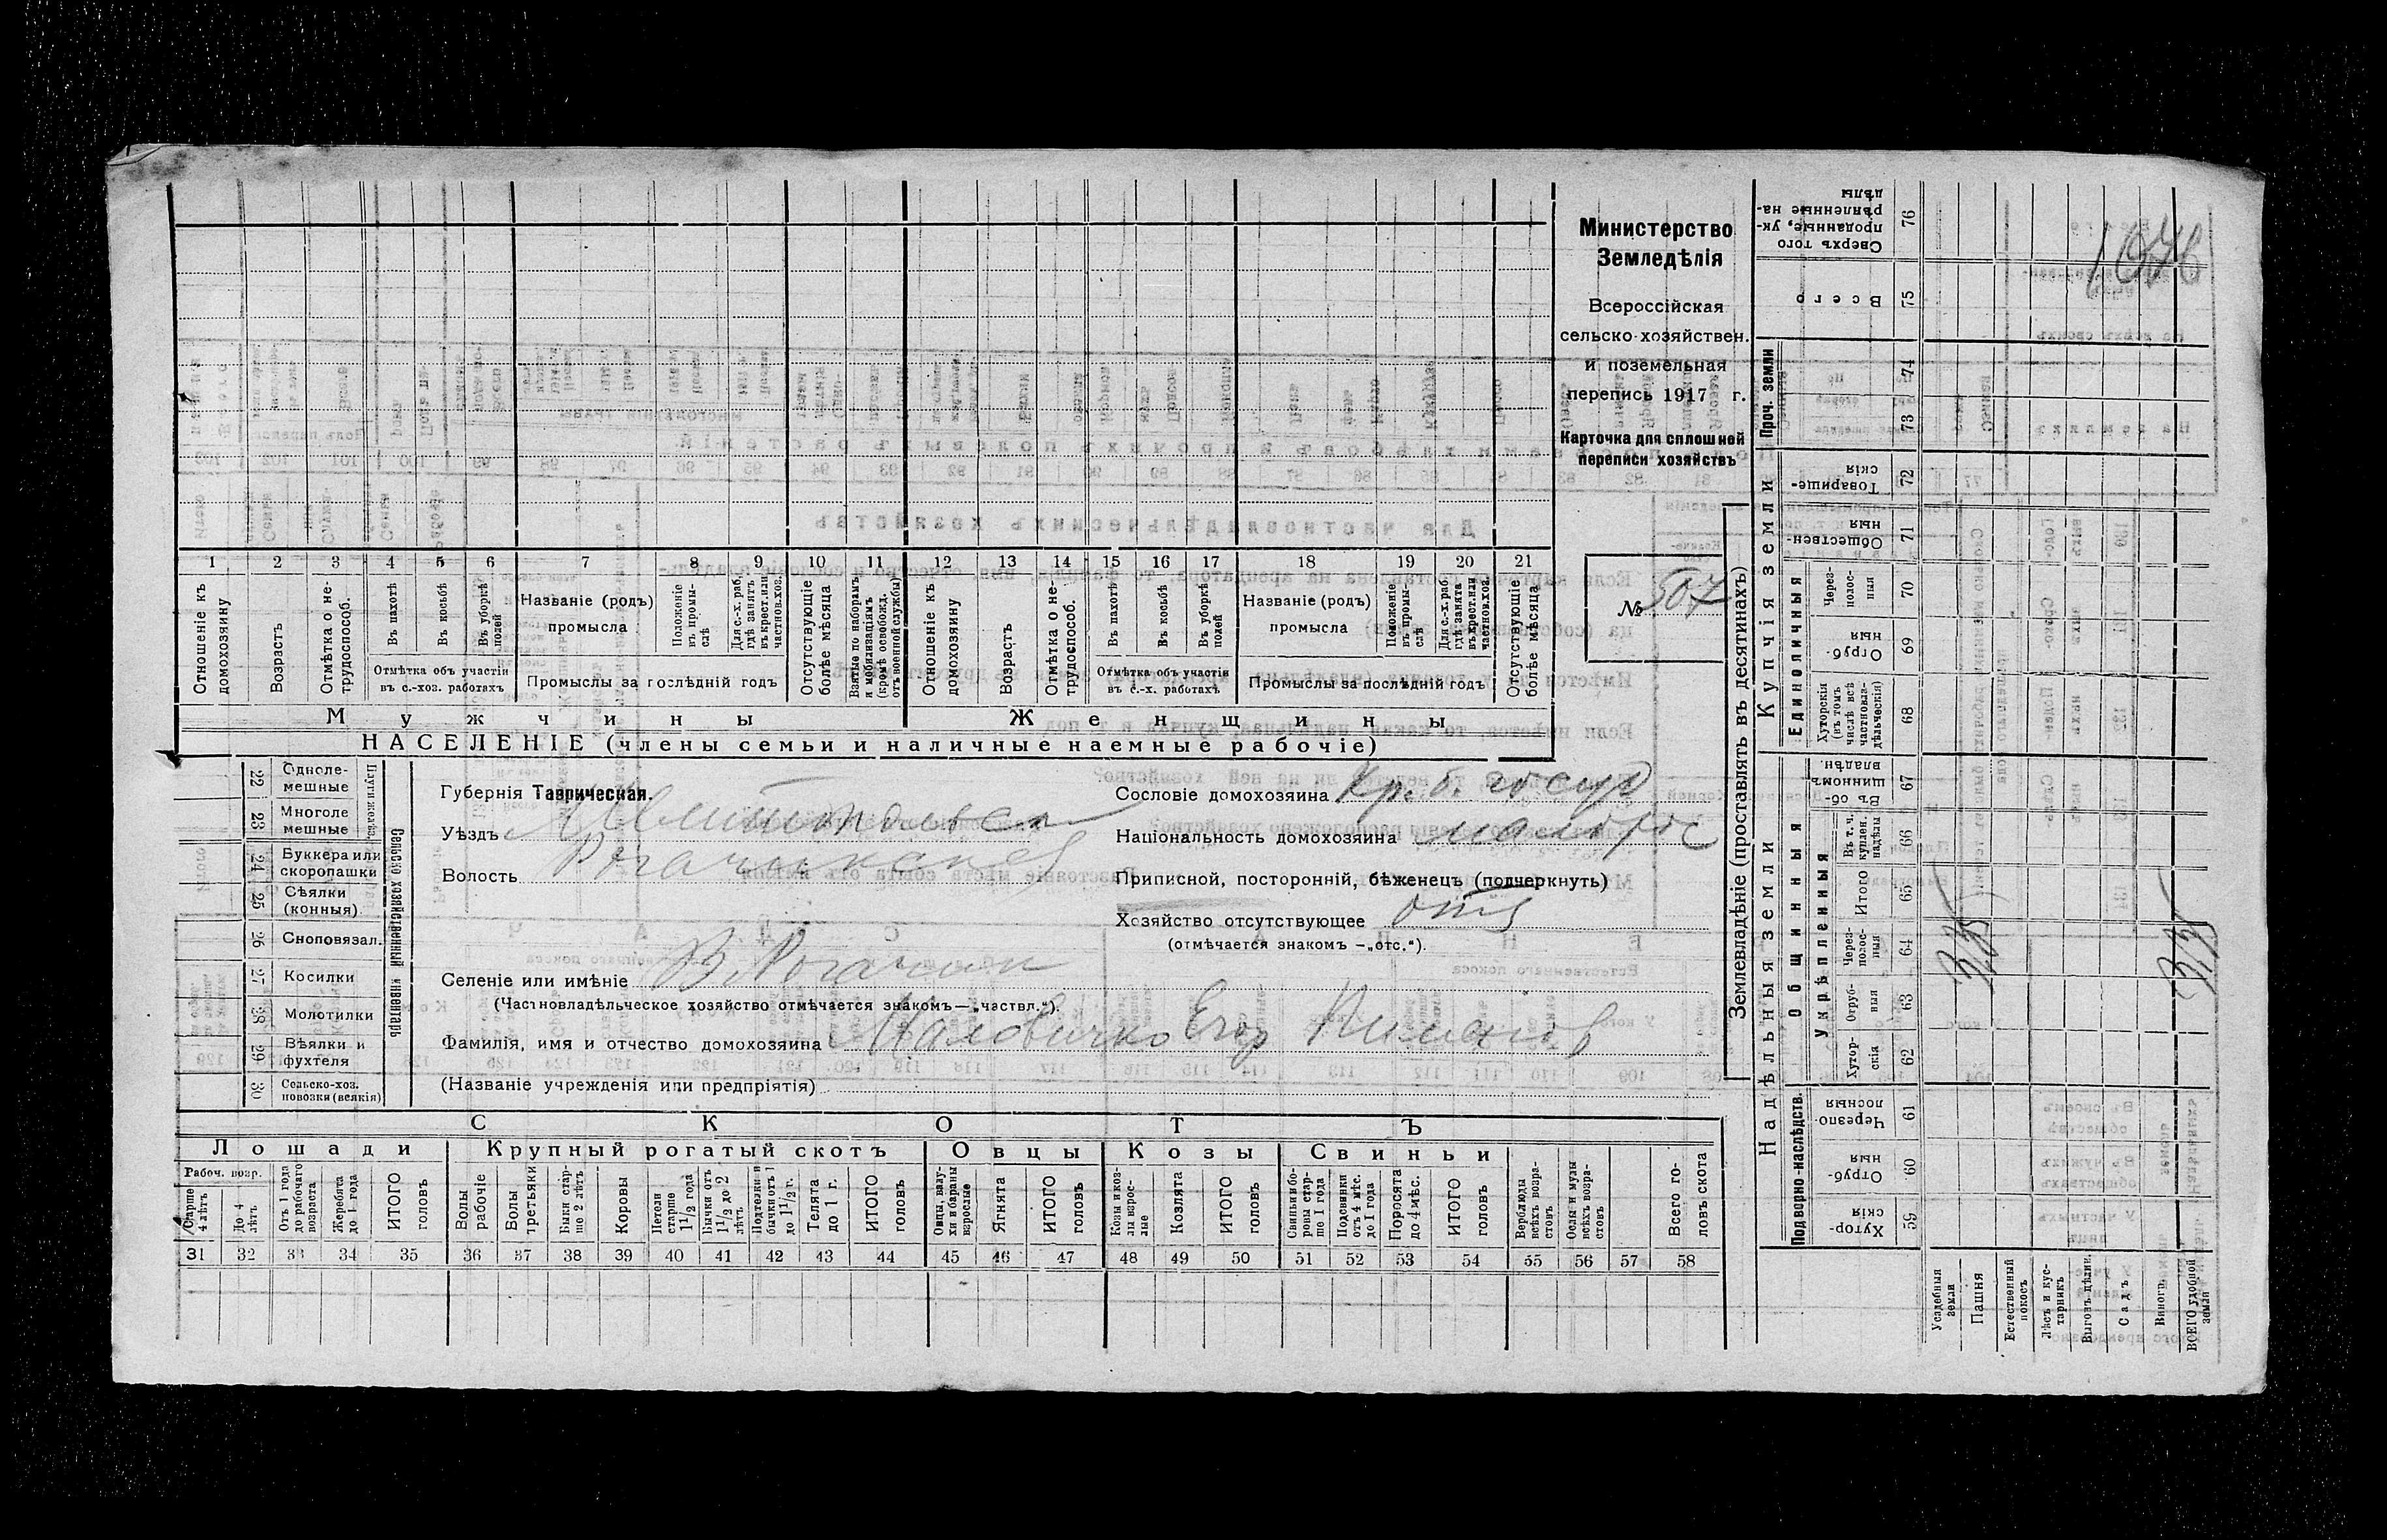 1 2 3 4 5 6 7 8 9 10 11 12 13 14 15 16 17 18 19 20 21
Отношеніе къ домохозяину
Возрастъ
Отмѣтка о не-трудоспособ.
Въ пахотѣ
Въ косьбѣ
Въ уборкѣ полей
Отмѣтка объ участіи
въ с.-хоз. работахъ
Названіе (родъ)
промысла
Положеніе въ промы-слѣ
Для с.-х. раб. гдѣ занятъ въ крест. или частнов. хоз.
Промыслы за послѣдній годъ
Отсутствующіе болѣе мѣсяца
Взятые по наборамъ и мобилизаціямъ (кромѣ освобожд. отъ военной службы)
Отношеніе къ домохозяину
Возрастъ
Отмѣтка о не-трудоспособ.
Въ пахотѣ
Въ косьбѣ
Въ уборкѣ полей
Отмѣтка объ участіи
въ с.-х. работахъ
Названіе (родъ)
промысла
Положеніе въ промы-слѣ
Для с.-х. раб. гдѣ занята въ крест. или частнов. хоз.
Промыслы за послѣдній годъ
Отсутствующіе болѣе мѣсяца
Мужчины Женщины
НАСЕЛЕНІЕ (члены семьи и наличные наемные рабочіе)
Министерство
Земледѣлія
Всероссійская
сельско-хозяйствен.
и поземельная
перепись 1917 г.
Карточка для сплошной
переписи хозяйствъ
№ 507
22 Одноле-мешные
23 Многоле мешные
Плуги желѣз.
24 Буккера или скоропашки
25 Сѣялки (конныя)
26 Сноповязал.
27 Косилки
28 Молотилки
29 Вѣялки и фухтеля
30 Сельско-хоз. повозки (всякія)
Сельско хозяйственный инвентарь
Губернія Таврическая.
Уѣздъ Мелитопольск
Волость Рогачикская
Селеніе или имѣніе В. Рогачик
(Частновладѣльческое хозяйство отмѣчается знакомъ—„частвл.“)
Фамилія, имя и отчество домохозяина Маловичко Егор Пиманов
(Названіе учрежденія или предпріятія)
Сословіе домохозяина Кр. б. госуд
Національность домохозяина малорос
Приписной, посторонній, бѣженецъ (подчеркнуть)
Хозяйство отсутствующее отс
(отмѣчается знакомъ —„отс.“).
СКОТЪ
Лошади Крупный рогатый скотъ Овцы Козы Свиньи
Рабоч. возр.
Старше 4 лѣтъ
До 4 лѣтъ
Отъ 1 года до рабочаго возраста
Жеребята до 1 года
ИТОГО головъ
Волы рабочіе
Волы третьяки
Быки стар-ше 2 лѣтъ
Коровы
Нетели старше 1 1/2 года
Бычки отъ 1 1/2 до 2 лѣтъ
Подтелки и бычки отъ 1 до 1 1/2 г.
Телята до 1 г.
ИТОГО головъ
Овцы, валу-хи и бараны взрослые
Ягнята
ИТОГО головъ
Козы и коз-лы взрос-лые
Козлята
ИТОГО головъ
Свиньи и бо-ровы стар-ше 1 года
Подсвинки отъ 4 мѣс. до 1 года
Поросята до 4 мѣс.
ИТОГО головъ
Верблюды всѣхъ возра-стовъ
Ослы и мулы всѣхъ возра-стовъ
Всего го-ловъ скота
31 32 33 34 35 36 37 38 39 40 41 42 43 44 45 46 47 48 49 50 51 52 53 54 55 56 57 58
Землевладѣніе (проставлять въ десятинахъ)
Надѣльныя земли
Купчія земли
Проч. земли
Подворно-наслѣдств.
Общинныя
Укрѣпленныя
Единоличныя
Хутор-скія 59
Отруб-ныя 60
Черезпо-лосныя 61
Хутор-скія 62
Отруб-ныя 63
Через-полос-ныя 64
Итого 65
Въ т. ч. куплен. надѣлы 66
Въ об-щинномъ владѣн. 67
Хуторскія (въ томъ числѣ всѣ частновла-дѣльческія) 68
Отруб-ныя 69
Через-полос-ныя 70
Обществен-ныя 71
Товарище-скія 72
73
74
Всего 75
Сверхъ того проданные, ук-рѣпленные на-дѣлы 76
Усадебныя земли
Пашня
Естественный покосъ
Лѣсъ и кус-тарникъ
Выгонъ цѣлин.
Садъ
Виногр.
ВСЕГО удобной земли